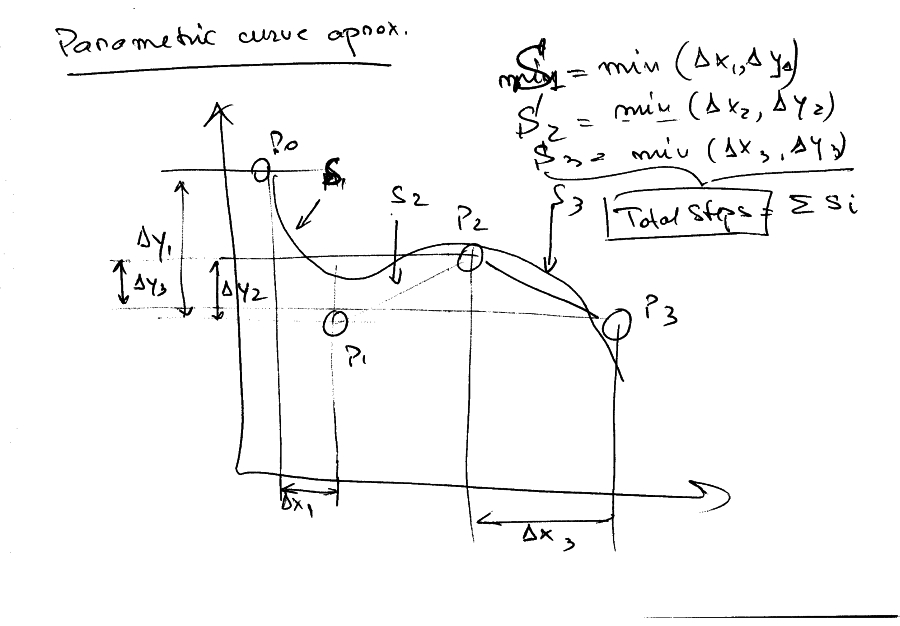 Parametric curve aprox.
S1 = min (Δx1, Δy1)
S2 = min (Δx2, Δy2)
S3 = min (Δx3, Δy3)
Total Steps = Σ Si
P0
S1
S2
P2
S3
Δy1
Δy3
Δy2
P3
P1
Δx1
Δx3